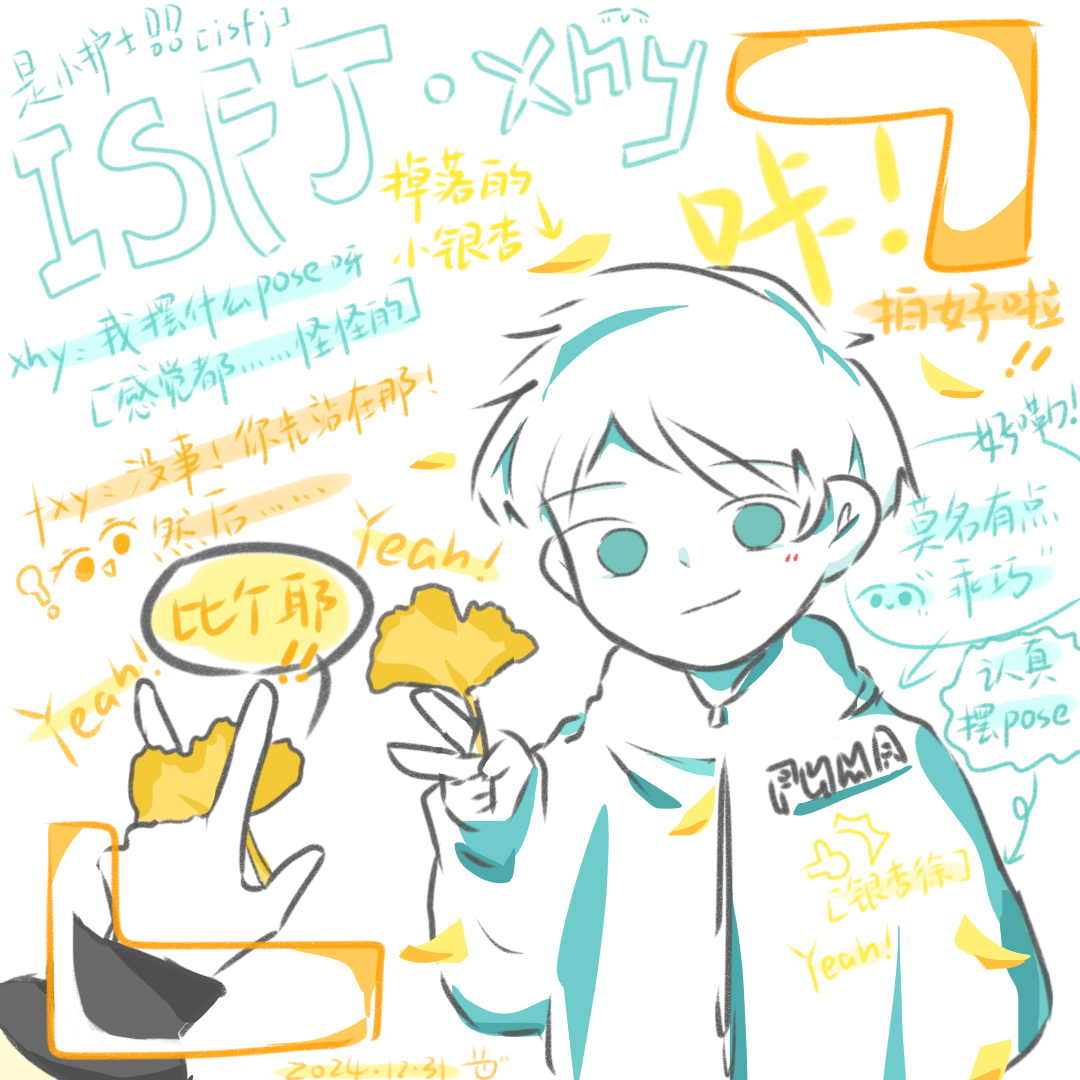 是小护士 [isfj]
ISFJ·xhy
掉落的
小银杏
咔！
拍好啦
!!
xhy：我摆什么pose呀
[感觉都……怪怪的]
txy：没事！你先站在那！
然后……
?!
比个耶
!!
Yeah!
Yeah!
好嘞!
莫名有点
乖巧
认真
摆pose
PUMA
[银杏徐]
Yeah!
2024.12.31